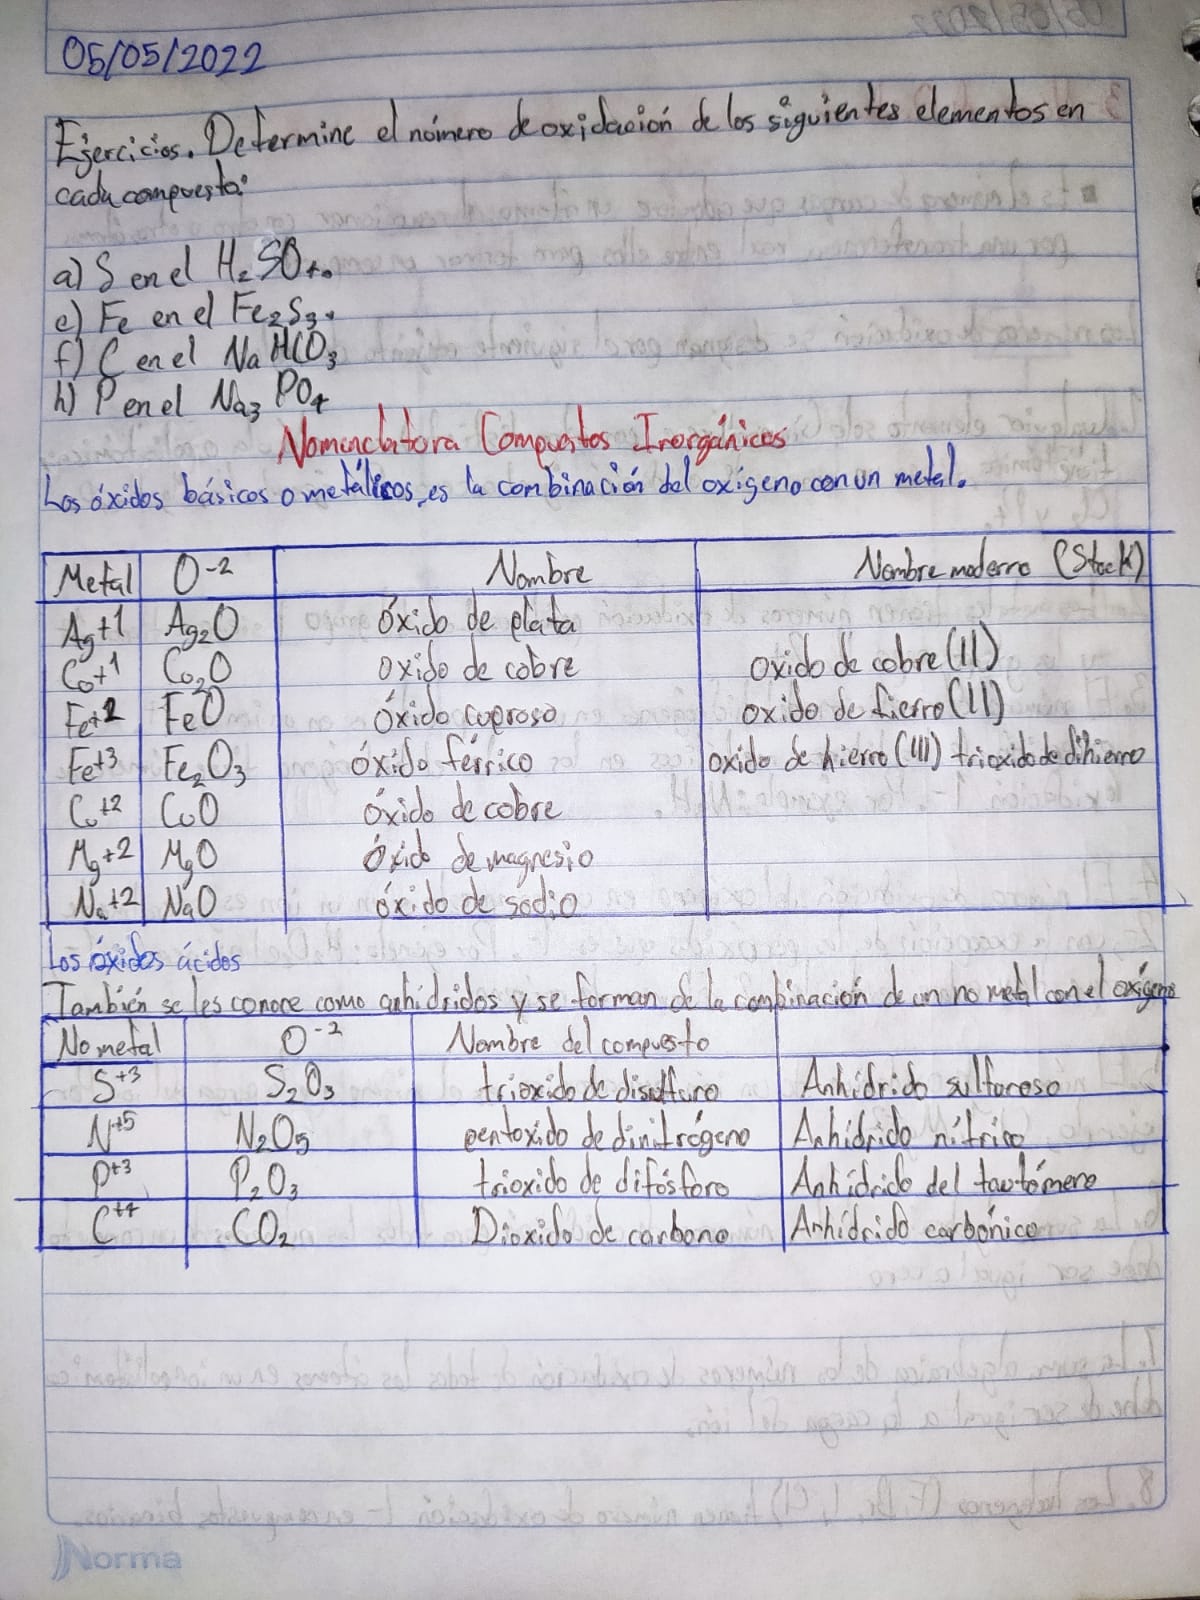 05/05/2022
Ejercicios. Determine el número de oxidación de los siguientes elementos en
cada compuesto:
a) S en el H2SO4.
e) Fe en el Fe2S3.
f) C en el NaHCO3
h) P en el Na3 PO4
Nomenclatura Compuestos Inorgánicos
Los óxidos básicos o metálicos, es la combinación del oxígeno con un metal.
Metal O-2 Nombre Nombre moderno (Stock)
Ag+1 Ag2O óxido de plata
Cu+1 Cu2O oxido de cobre oxido de cobre (II)
Fe+2 FeO óxido cuproso oxido de fierro (II)
Fe+3 Fe2O3 óxido férrico oxido de hierro (III) trioxido de dihierro
Cu+2 CuO óxido de cobre
Mg+2 MgO óxido de magnesio
Na+2 NaO óxido de sodio
Los óxidos ácidos
También se les conoce como anhídridos y se forman de la combinación de un no metal con el oxígeno
No metal O-2 Nombre del compuesto
S+3 S2O3 trioxido de disulfuro Anhídrido sulfuroso
N+5 N2O5 pentoxido de dinitrógeno Anhídrido nítrico
P+3 P2O3 trioxido de difósforo Anhídrido del tautómero
C+4 CO2 Dioxido de carbono Anhídrido carbónico
Norma